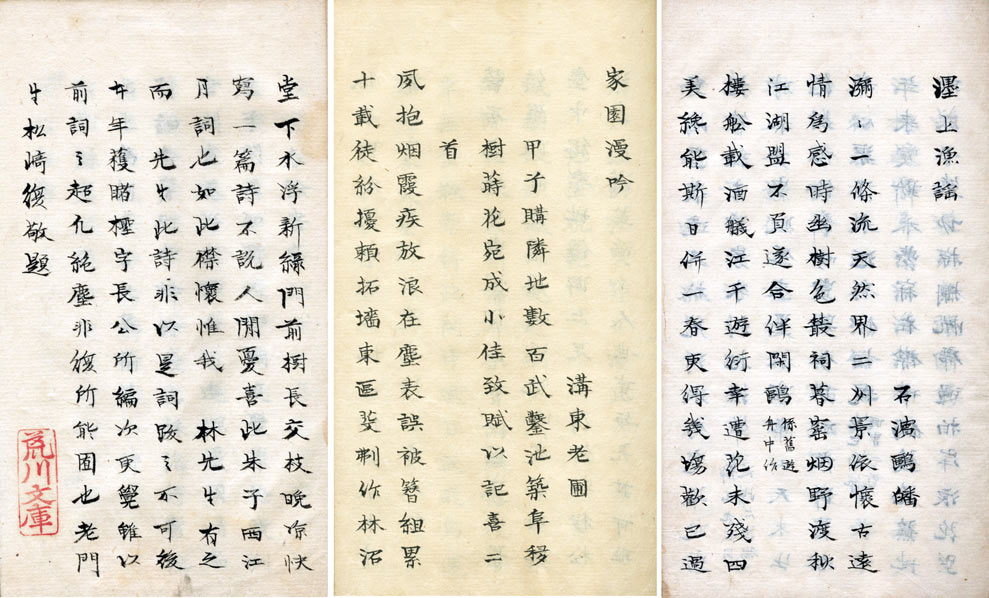 濹上漁謡
石濱鷗皤
瀰々一條流天然界二州景依懷古遠
情為感時幽樹色叢祠暮窑烟野渡秋
江湖盟不負遂合伴閑鷗係舊遊舟中作
樓船載酒艤江干遊衍幸遭花未殘四
美終能斯日併一春更得幾塲歡已過
家園漫吟
溝東老圃
甲子購隣地數百武鑿池築阜移
樹蒔花宛成小佳致賦以記喜二
首
夙抱烟霞疾放浪在塵表誤被簪組累
十載徒紛擾頼拓墻東區芟剃作林沼
堂下水浮新綠門前樹長交枝晩凉快
寫一篇詩不説人間憂喜此朱子西江
月詞也如此襟懷惟我 林先生有之
而先生此詩非以是詞跋之不可後
廿年獲睹極宇長公所編次更覺雖以
前詞之超凡絶塵非復所能囿也老門
生松崎復敬題
荒川文庫